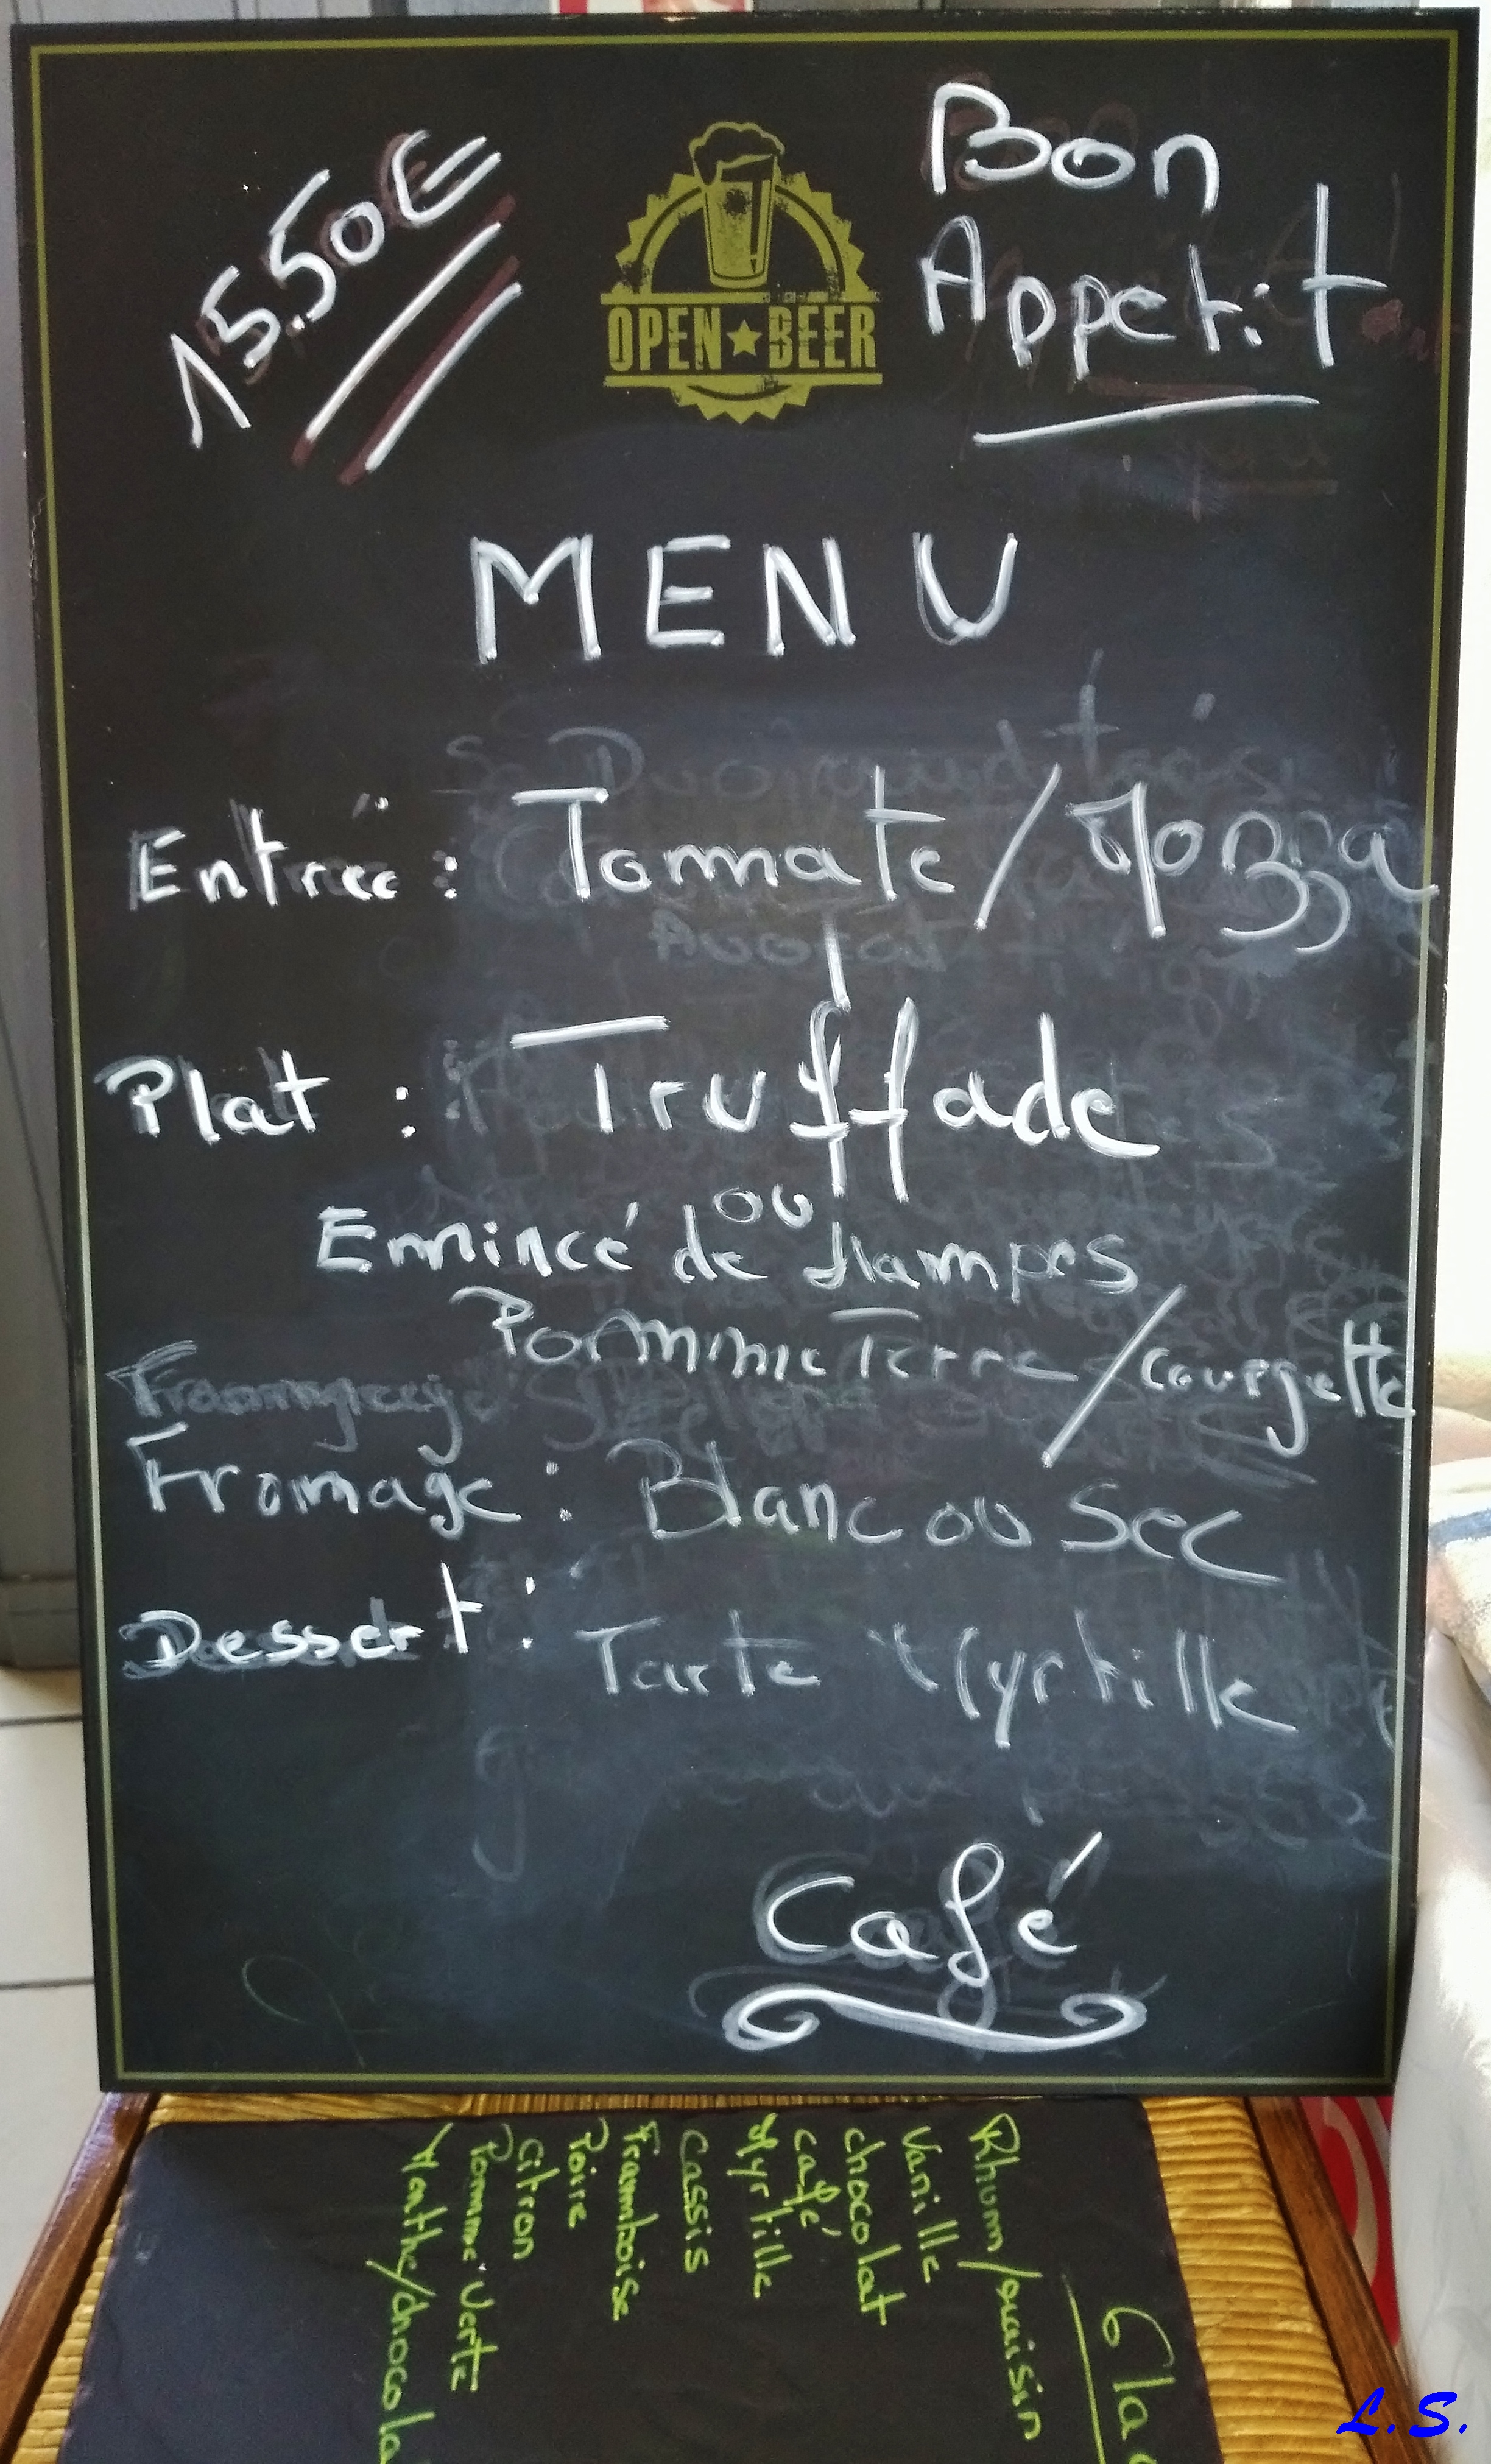 15.50€
OPEN★BEER
Bon
Appetit
MENU
Entrée : Tomate/Mozza
Plat : Truffade
ou
Emincé de Hampes
Pomme Terre/Courgette
Fromage : Blanc ou Sec
Dessert : Tarte Myrtille
Café
Gla
Rhum/raisin
Vanille
chocolat
café
Myrtille
Cassis
Framboise
Poire
Citron
Pomme Verte
Menthe/chocola
L.S.